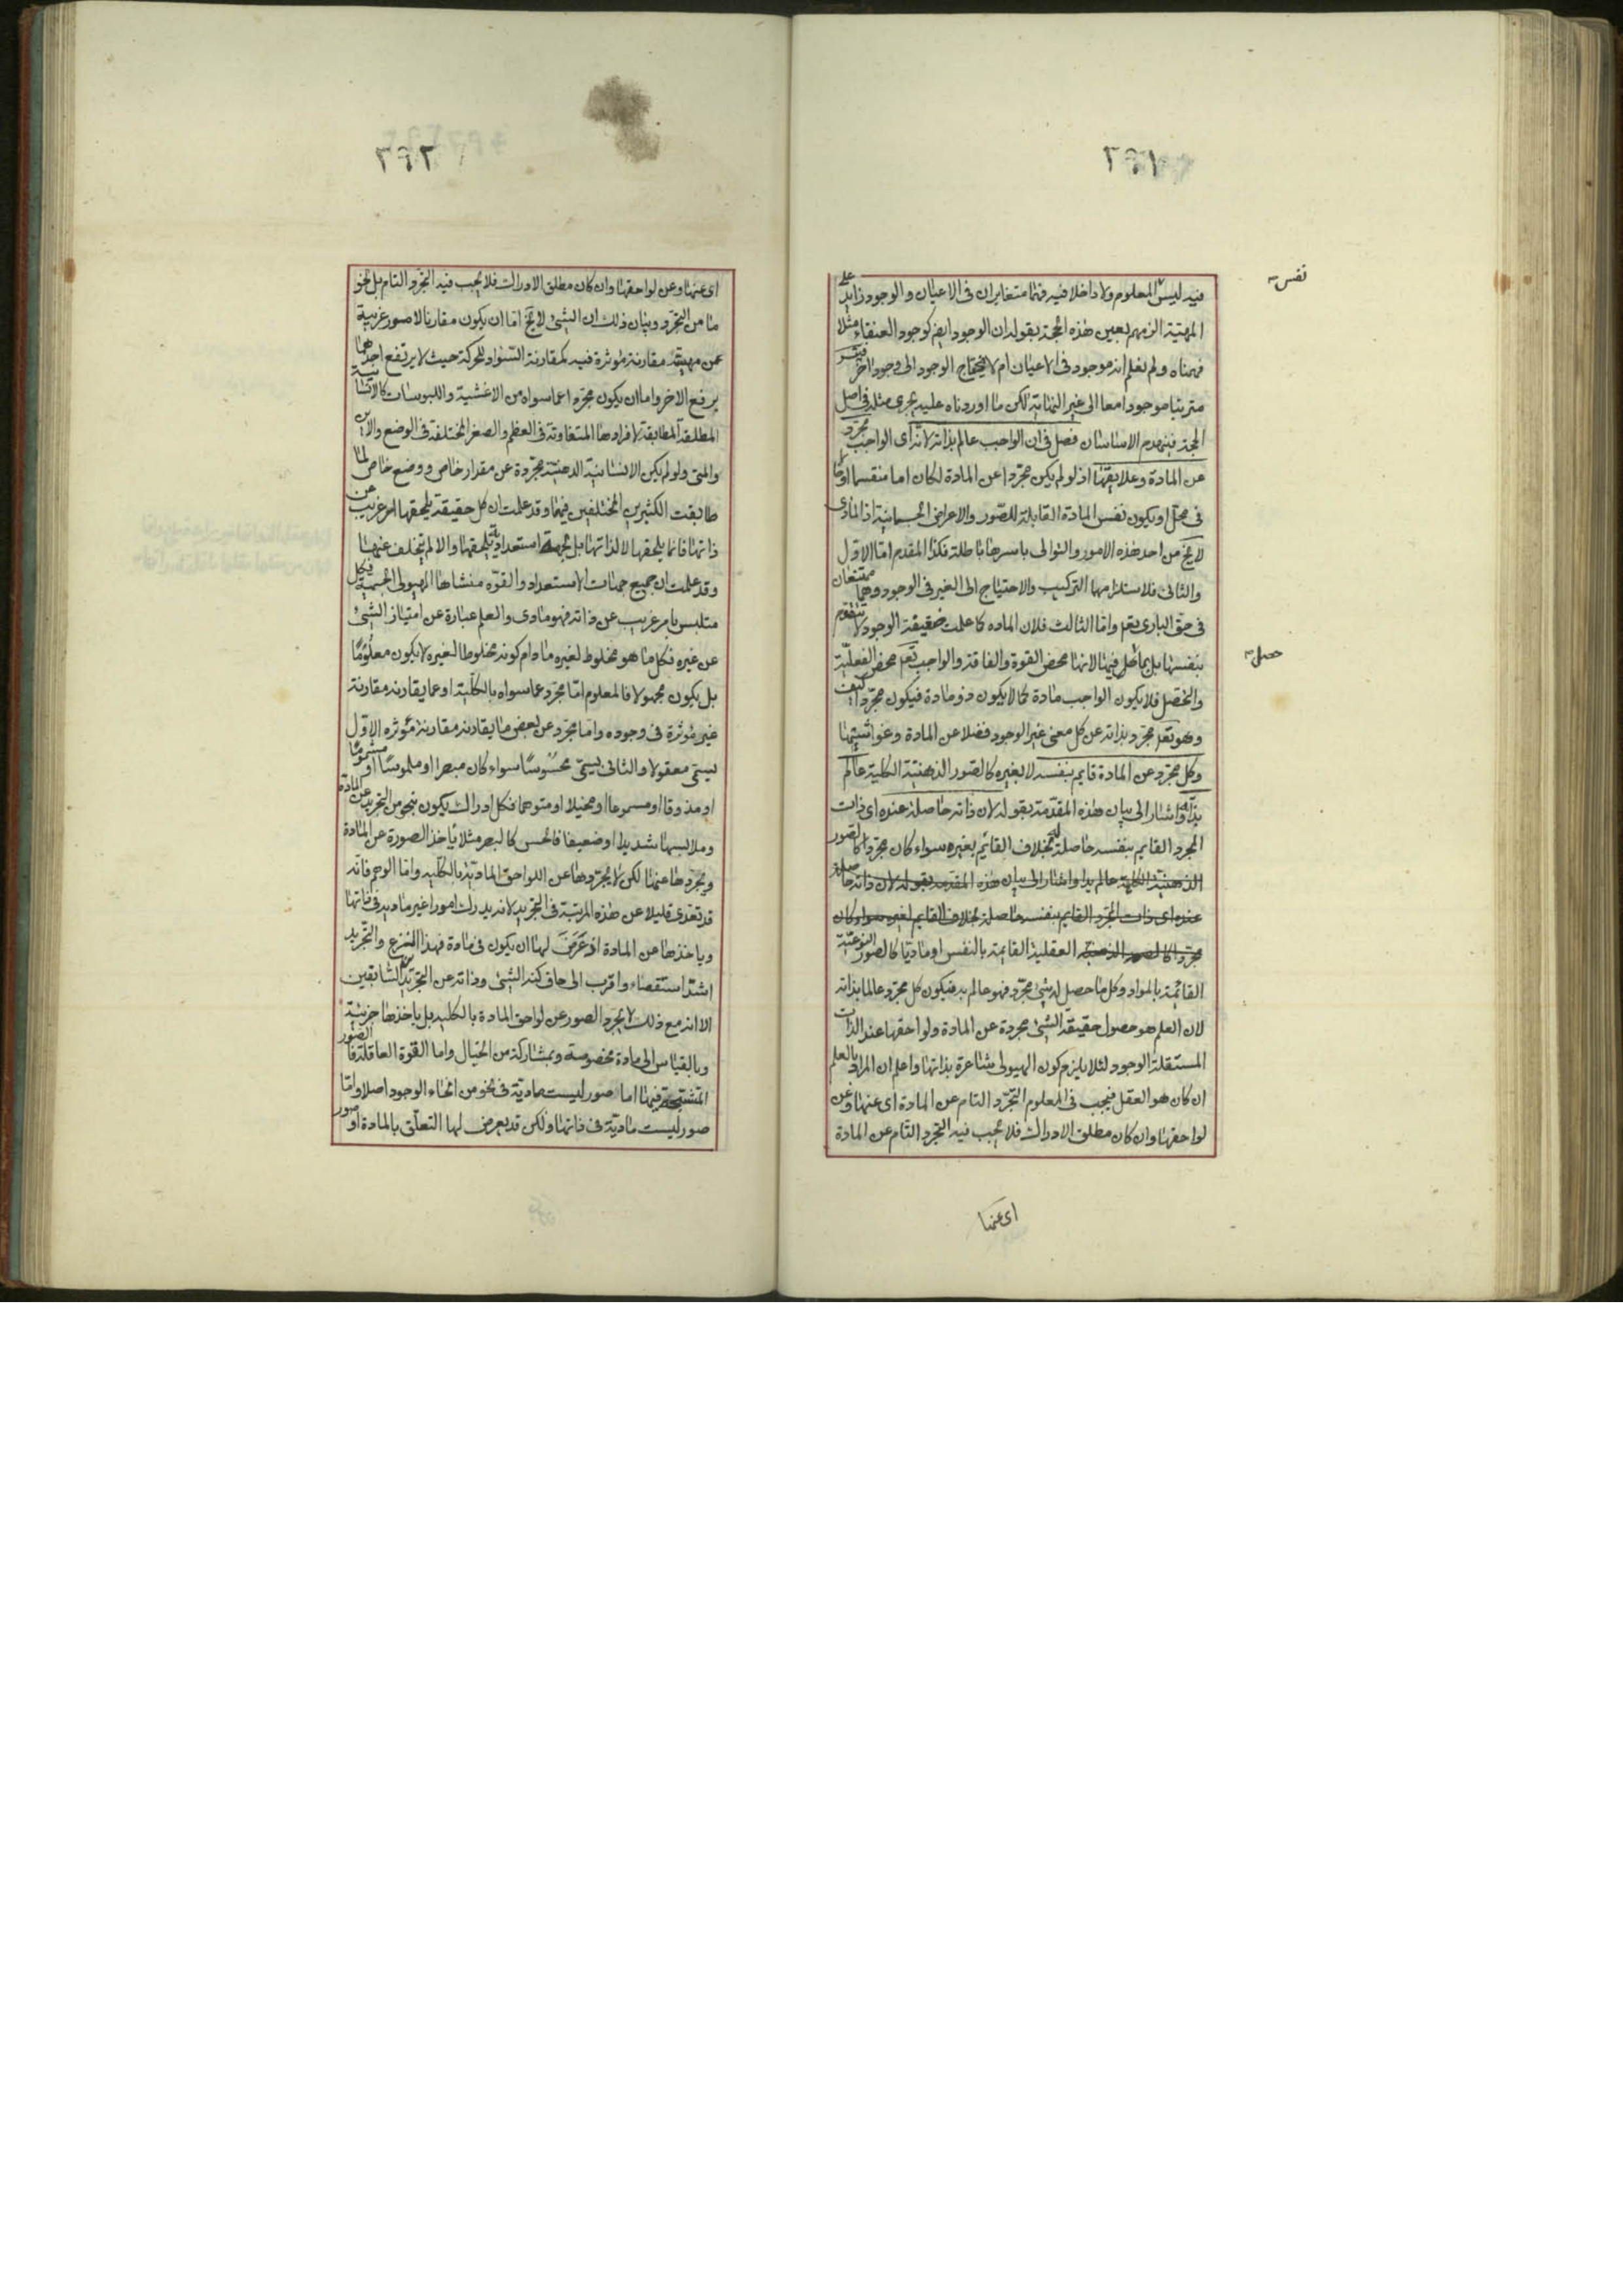 ٢٩١
نفس
فيه ليس المعلوم ولا داخلا فيه فهما متغايران في الاعيان والوجود زايد على
المهية الزمهم بعين هذه الحجة بقوله ان الوجود ايض كوجود العنقاء مثلا
فهمناه ولم نعلم انه موجود في الاعيان ام لا فيحتاج الوجود الى وجود اخر
مترتبا موجودا معا الى غير النهاية لكن ما اوردناه عليه يجرى مثله في اصل
الحجة فينهدم الاساسان فصل في ان الواجب عالم بذاته لانه اى الواجب مجرد
عن المادة وعلايقها اذ لو لم يكن مجردا عن المادة لكان اما منقسما او حالا
في محل او يكون نفس المادة القابلة للصور والاعراض الجسمانية اذ المادى
لا يخ من احد هذه الامور والتوالى باسرها باطلة فكذا المقدم اما الاول
والثاني فلاستلزامهما التركيب والاحتياج الى الغير في الوجود وهما ممتنعان
في حق البارى تعم واما الثالث فلان الماده كما علمت حقيقة الوجود لا تتقوم
حصل
بنفسها بل بما حل فيها لانها محض القوة والفاقة والواجب تعم محض الفعلية
والتحصل فلا يكون الواجب مادة كما لا يكون ذو مادة فيكون مجردا كيف
وهو تعم مجرد بذاته عن كل معنى غير الوجود فضلا عن المادة وغواشيها
وكل مجرد عن المادة قايم بنفسه لا بغيره كالصور الذهنية الكلية عالم
بذاته واشار الى بيان هذه المقدمة بقوله لان ذاته حاصلة عنده اى ذات
المجرد القايم بنفسه حاصلة له بخلاف القائم بغيره سواء كان مجردا كالصور
الذهنية الكلية عالم بذا واشار الى بيان هذه المقدمة بقوله لان ذاته حاصلة
عنده اى ذات المجرد القايم بنفسه حاصلة بخلاف القايم لغيره سواء كان
مجردا كالصور الذهنية العقلية القايمة بالنفس او ماديا كالصور النوعية
القائمة بالمواد وكل ما حصل له شئ مجرد فهو عالم به فيكون كل مجرد عالما بذاته
لان العلم هو حصول حقيقة الشئ مجردة عن المادة ولواحقها عند الذات
المستقلة الوجود لئلا يلزم كون الهيولى شاعرة بذاتها واعلم ان المراد بالعلم
ان كان هو العقل فيجب في المعلوم التجرد التام عن المادة اى عنها وعن
لواحقها وان كان مطلق الادراك فلا يجب فيه التجرد التام عن المادة
اى عنها
٢٩٢
اى عنها وعن لواحقها وان كان مطلق الادراك فلا يجب فيه التجرد التام بل نحو
ما من التجرد وبيان ذلك ان الشئ لا يخ اما ان يكون مقارنا لامور غريبة
عن مهيته مقارنة مؤثرة فيه كمقارنة السواد للحركة حيث لا يرتفع احدهما
برفع الاخر واما ان يكون مجردا عما سواه من الاغشية واللبوسات كالانسانية
المطلقة المطابقة لافرادها المتفاوتة في العظم والصغر المختلفة في الوضع والاين
والمتى ولو لم يكن الانسانية الذهنية مجردة عن مقدار خاص ووضع خاص لما
طابقت الكثيرين المختلفين فيها وقد علمت ان كل حقيقة يلحقها امر غريب عن
ذاتها فانما يلحقها لا لذاتها بل لجهة استعدادية يلحقها والا لم يتخلف عنها
وقد علمت ان جميع جهات الاستعداد والقوه منشاها الهيولى الجسمية فكل
متلبس بامر غريب عن ذاته فهو مادى والعلم عبارة عن امتياز الشئ
عن غيره فكل ما هو مخلوط لغيره ما دام كونه مخلوطا لغيره لا يكون معلوما
بل يكون مجهولا فالمعلوم اما مجرد عما سواه بالكلية او عما يقارنه مقارنة
غير مؤثرة في وجوده واما مجرد عن بعض ما يقارنه مقارنة مؤثره الاول
يسمى معقولا والثانى يسمى محسوسا سواء كان مبصرا او ملموسا او مشموما
او مذوقا او مسموعا او مخيلا او متوهما فكل ادراك يكون بنحو من التجريد عن المادة
وملابسها شديدا او ضعيفا فالحس كالبصر مثلا ياخذ الصورة عن المادة
ويجردها عنها لكن لا يجردها عن اللواحق المادية بالكليه واما الوهم فانه
قد تعدى قليلا عن هذه المرتبة في التجريد لانه يدرك امورا غير ماديه في ذاتها
وياخذها عن المادة اذ عرض لها ان يكون في مادة فهذا النزع والتجريد
اشد استقصاء واقرب الى حاف كنه الشئ وذاته عن التجريدين السابقين
الا انه مع ذلك لا يجرد الصور عن لواحق المادة بالكليه بل ياخذها جزئية
وبالقياس الى مادة مخصوصة وبمشاركة من الخيال واما القوة العاقلة فالصور
المتشبحة فيها اما صور ليست مادية في نحو من انحاء الوجود اصلا واما
صور ليست مادية في ذاتها ولكن قد يعرض لها التعلق بالمادة او صور